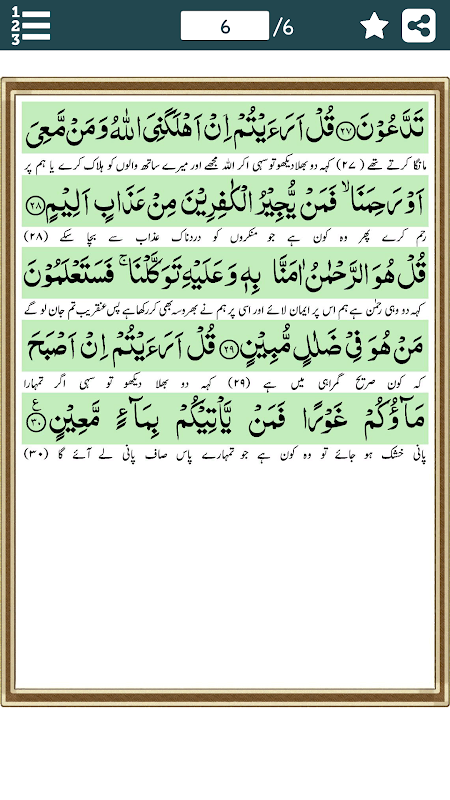 1
2
3
6 /6
تَدَّعُوْنَ ﴿۲۷﴾ قُلْ اَرَءَيْتُمْ اِنْ اَهْلَكَنِيَ اللّٰهُ وَمَنْ مَّعِيَ
مانگا کرتے تھے (۲۷) کہہ دو بھلا دیکھو تو سہی اگر اللہ مجھے اور میرے ساتھ والوں کو ہلاک کرے یا ہم پر
اَوْ رَحِمَنَا ۙ فَمَنْ يُّجِيْرُ الْكٰفِرِيْنَ مِنْ عَذَابٍ اَلِيْمٍ ﴿۲۸﴾
رحم کرے پھر وہ کون ہے جو منکروں کو دردناک عذاب سے بچا سکے (۲۸)
قُلْ هُوَ الرَّحْمٰنُ اٰمَنَّا بِهٖ وَعَلَيْهِ تَوَكَّلْنَا ۚ فَسَتَعْلَمُوْنَ
کہہ دو وہی رحمٰن ہے ہم اس پر ایمان لائے اور اسی پر ہم نے بھروسہ بھی کر رکھا ہے پس عنقریب تم جان لو گے
مَنْ هُوَ فِيْ ضَلٰلٍ مُّبِيْنٍ ﴿۲۹﴾ قُلْ اَرَءَيْتُمْ اِنْ اَصْبَحَ
کہ کون صریح گمراہی میں ہے (۲۹) کہہ دو بھلا دیکھو تو سہی اگر تمہارا
مَآؤُكُمْ غَوْرًا فَمَنْ يَّاْتِيْكُمْ بِمَآءٍ مَّعِيْنٍ ﴿۳۰﴾ ع
پانی خشک ہو جائے تو وہ کون ہے جو تمہارے پاس صاف پانی لے آئے گا (۳۰)